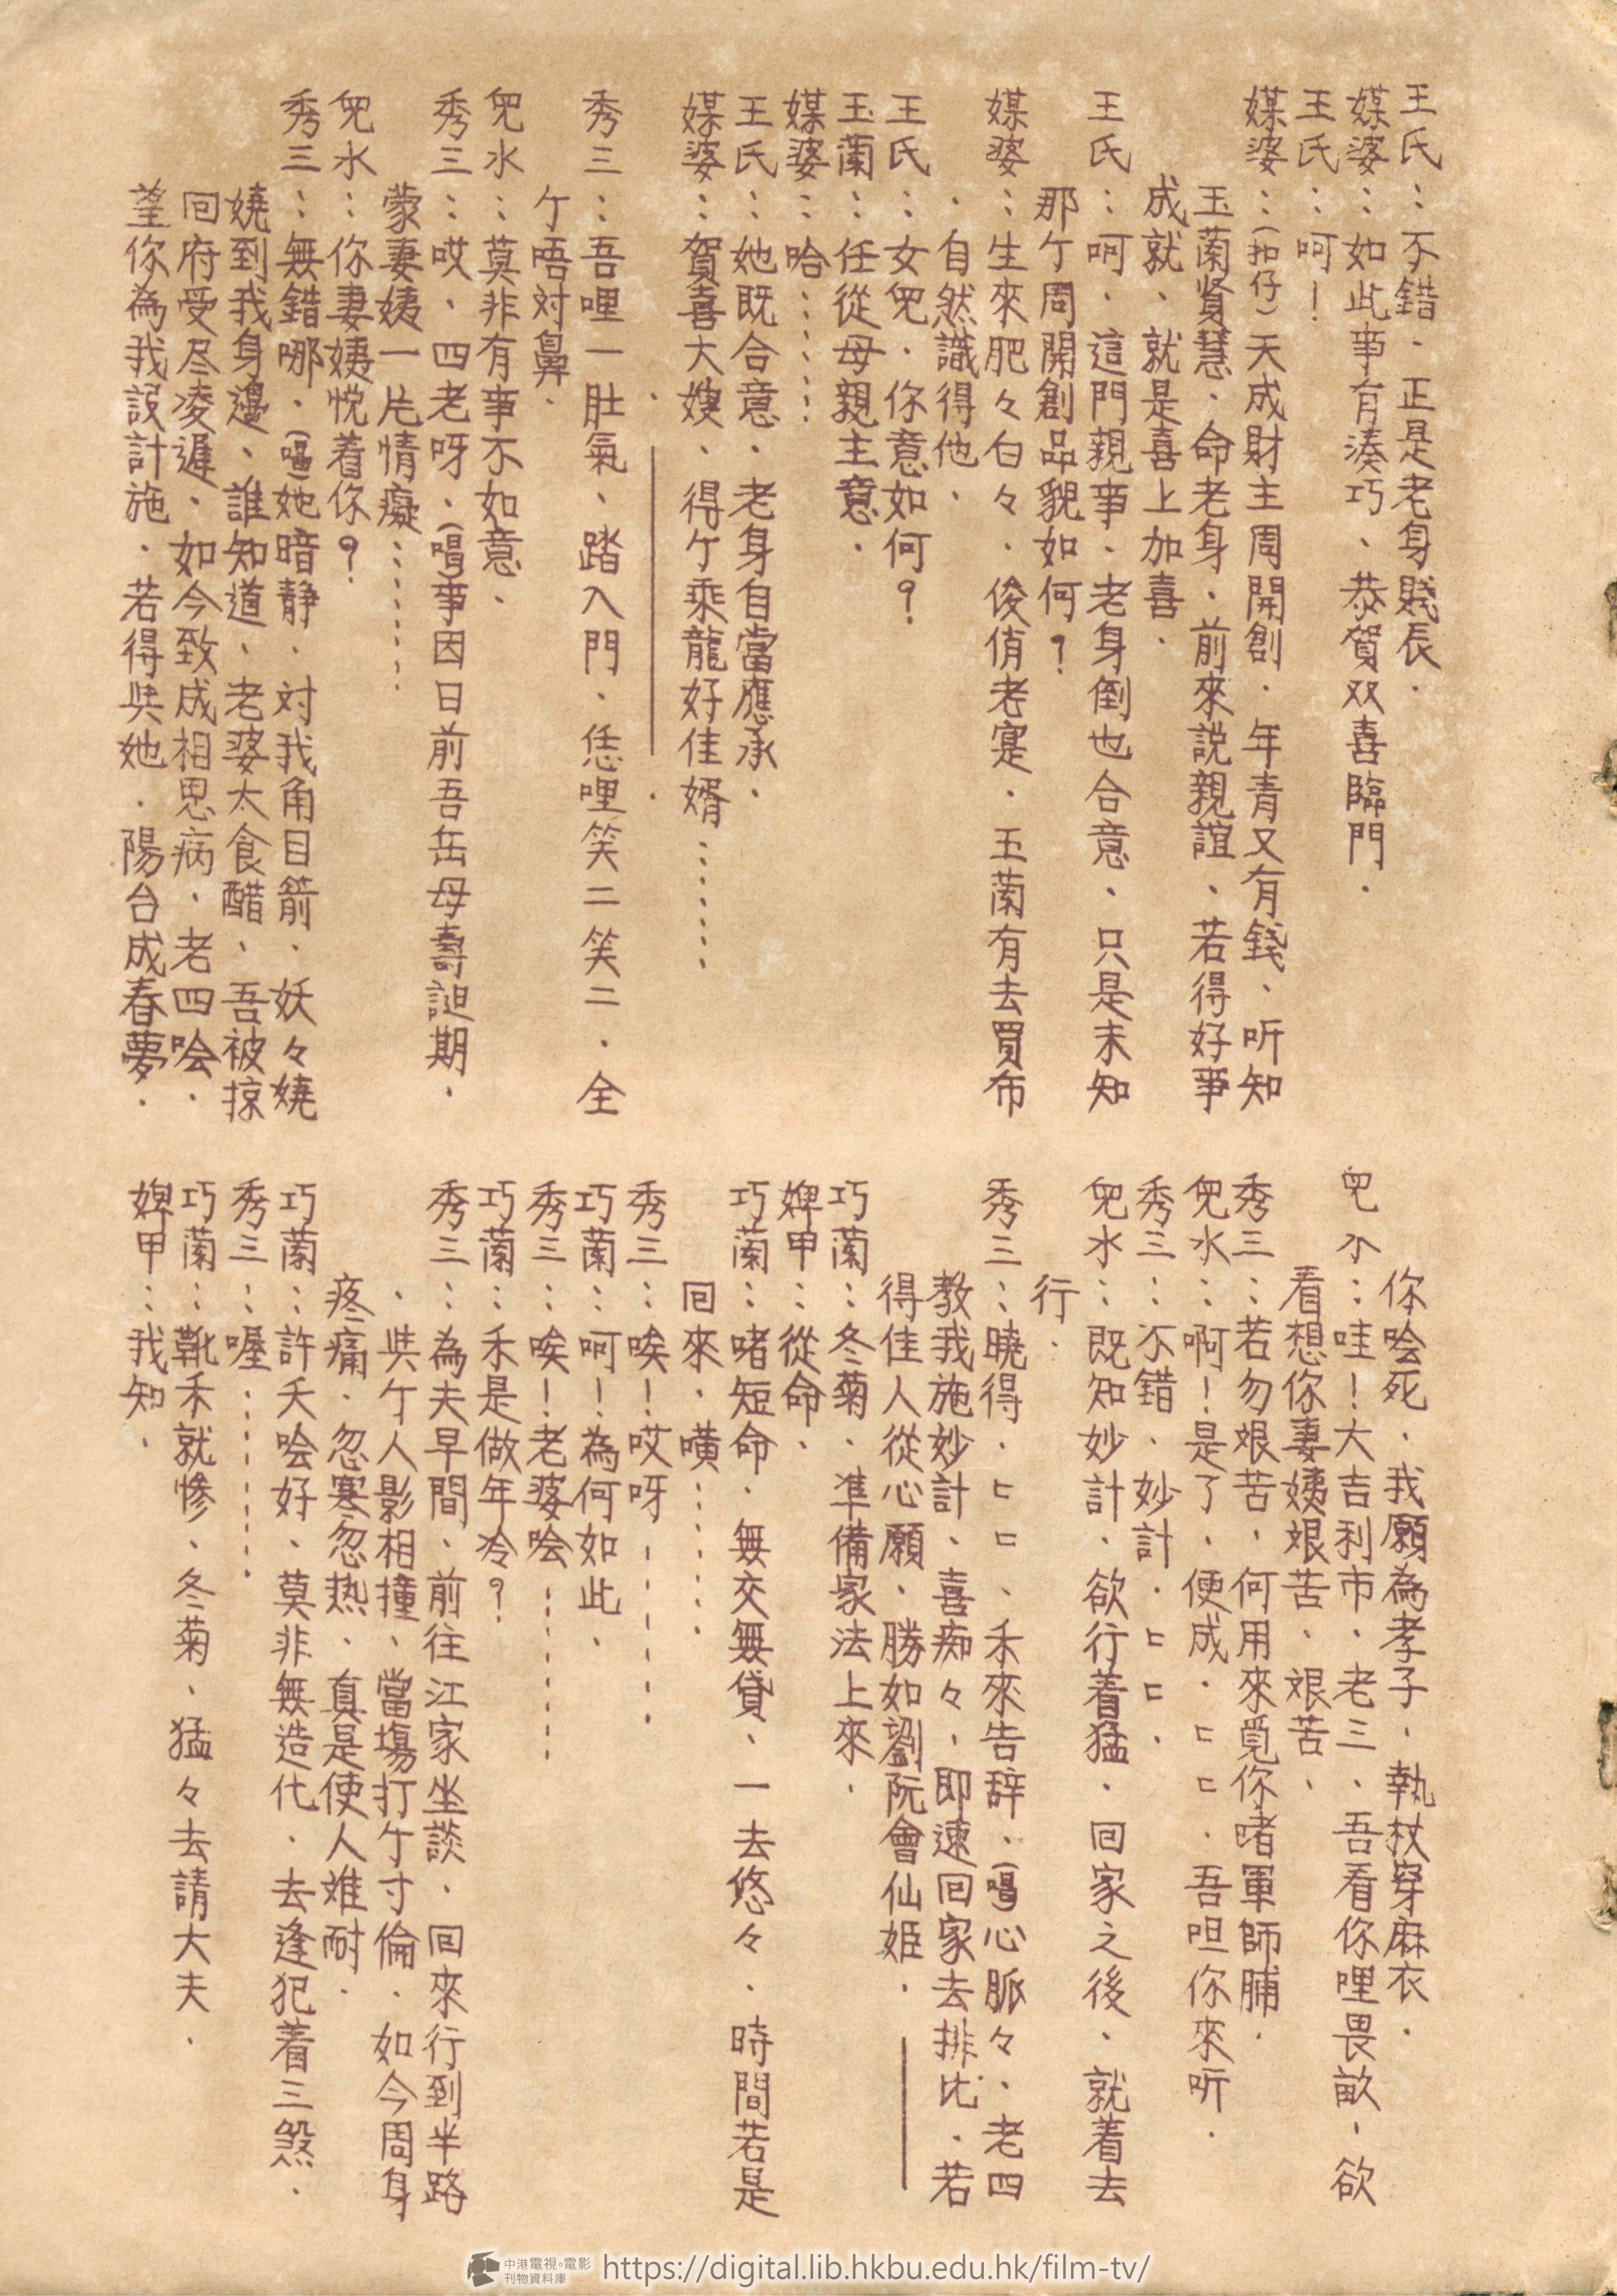 王氏：不錯．正是老身賤辰．
媒婆：如此事有湊巧、恭賀双喜臨門．
王氏：呵！
媒婆：(扣仔)天成財主周開創．年青又有錢、听知
玉蘭賢慧、命老身、前來説親誼、若得好事
成就、就是喜上加喜．
王氏：呵、這門親事、老身倒也合意、只是未知
那亇周開創品貌如何？
媒婆：生來肥々白々．俊俏老寔．玉蘭有去買布
．自然識得他、
王氏：女兜．你意如何？
玉蘭：任從母親主意．
媒婆：哈：：：：
王氏：她既合意、老身自當應承．
媒婆：賀喜大嫂、得亇乘龍好佳婿：：：：：
秀三：吾哩一肚氣、踏入門、恁哩笑二笑二．全
亇唔対鼻．
兜水：莫非有事不如意、
秀三：哎、四老呀、(唱)事因日前吾岳母壽誕期．
蒙妻姨一片情癡：：：：：
兜水：你妻姨悅着你？
秀三：無錯哪．(唱)她暗静．対我角目箭、妖々嬈
嬈到我身邊、誰知道、老婆太食醋、吾被掠
回府受尽凌遲、如今致成相思病、老四唅．
望你為我設計施．若得与她．陽台成春夢．
你唅死．我願為孝子，執杖穿麻衣．
兜水：哇！大吉利市．老三、吾看你哩畏畝，欲
看想你妻姨艰苦、艰苦、
秀三：若勿艰苦，何用來覓你啫軍師脯．
兜水：啊！是了、便成．匸匸．吾呾你來听．
秀三：不錯、妙計．匸匸．
兜水：既知妙計、欲行着猛．回家之後、就着去
行．
秀三：曉得．匸匸、禾來告辞、(唱)心脈々、老四
教我施妙計、喜痴々，即速回家去排比．若
得佳人從心願、勝如劉阮會仙姬．
巧蘭：冬菊．準備家法上來．
婢甲：從命、
巧蘭：啫短命．無交無貸、一去悠々．時間若是
回來、嘪：：：：
秀三：唉！哎呀－－－－
巧蘭：呵！為何如此、
秀三：唉！老婆唅：：：：：
巧蘭：禾是做年冷？
秀三：為夫早間、前往江家坐談．回來行到半路
、与亇人影相撞、當場打亇寸倫．如今周身
疼痛．忽寒忽热、真是使人难耐．
巧蘭：許夭唅好、莫非無造化．去逢犯着三煞．
秀三：喔：：：：：
巧蘭：靴禾就慘、冬菊、猛々去請大夫．
婢甲：我知、
中港電視·電影
刊物資料庫
https://digital.lib.hkbu.edu.hk/film-tv/